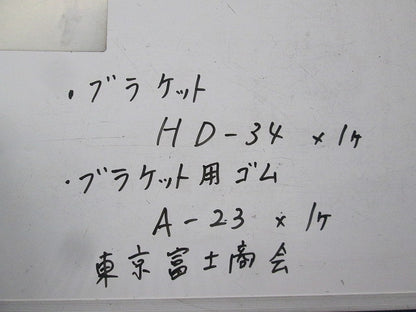 ・ブラケット
HD-34 ×1ケ
・ブラケット用ゴム
A-23 ×1ケ
東京富士商会